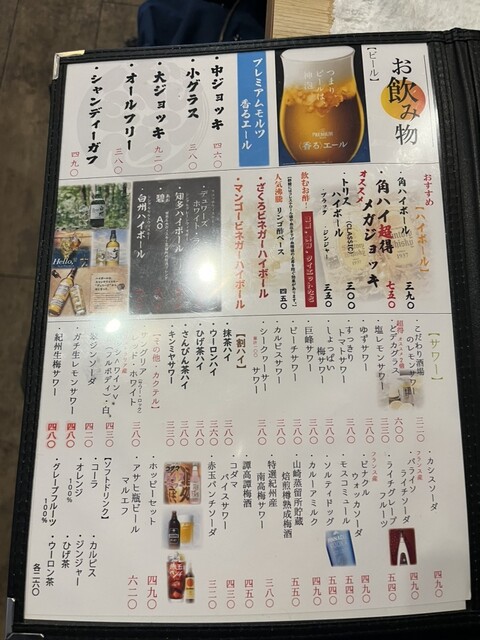 お飲み物
【ビール】
つまり
ビールは
神泡。
〈香る〉エール
プレミアムモルツ
香るエール
・中ジョッキ 四六〇
・小グラス 三八〇
・大ジョッキ 九二〇
・オールフリー 三八〇
・シャンディーガフ 四九〇
おすすめ
【ハイボール】
・角ハイボール 三九〇
オススメ
・角ハイ超得
メガジョッキ 七五〇
・トリス
ハイボール 三〇〇
(CLASSIC)
ブラック ジンジャー 三五〇
飲むお酢!
人気沸騰 リンゴ酢ベース 四五〇
・ざくろビネガーハイボール
・マンゴービネガーハイボール
・デュワーズ
ホワイト・ラベル
・知多ハイボール
・碧 Ao
・白州ハイボール
Hello.
【サワー】
・こだわり酒場
のレモンサワー 三二〇
超得
・メガグラス 六〇〇
・塩レモンサワー 三五〇
・ゆずサワー
・すっきり
トマトサワー 三八〇
・しょっぱい
梅サワー 三八〇
・巨峰サワー 三八〇
・ピーチサワー 三八〇
・カルピスサワー 三八〇
・シークヮサー
サワー
【割ハイ】
・抹茶ハイ 三八〇
・ウーロンハイ 三八〇
・ひげ茶ハイ 三八〇
・さんぴん茶ハイ 三八〇
・キンミヤサワー 三三〇
【その他・カクテル】
・サングリア
赤・白
・翠ジンソーダ
・ガチ生レモンサワー 四八〇
・紀州生梅サワー 四八〇
・カシスソーダ 四九〇
フランス産
・パライソ
ライチソーダ 四九〇
・ライチグレープ
フルーツ 五四〇
フランス産
・ピナクル
ウォッカソーダ 四九〇
・モスコミュール 五四〇
・ソルティドッグ 五四〇
・カルーアミルク 四九〇
・山崎蒸留所貯蔵
焙煎樽熟成梅酒 五五〇
・特選紀州産
南高梅サワー 三八〇
・譚高譚梅酒 四五〇
・コダマ
バイスサワー 四三〇
・赤玉パンチソーダ 三二〇
・ホッピーセット 四九〇
・アサヒ瓶ビール
マルエフ 六二〇
【ソフトドリンク】
・コーラ
・カルピス
・オレンジ
100%
・ジンジャー
・ひげ茶
・グレープフルーツ
100%
・ウーロン茶
各二六〇